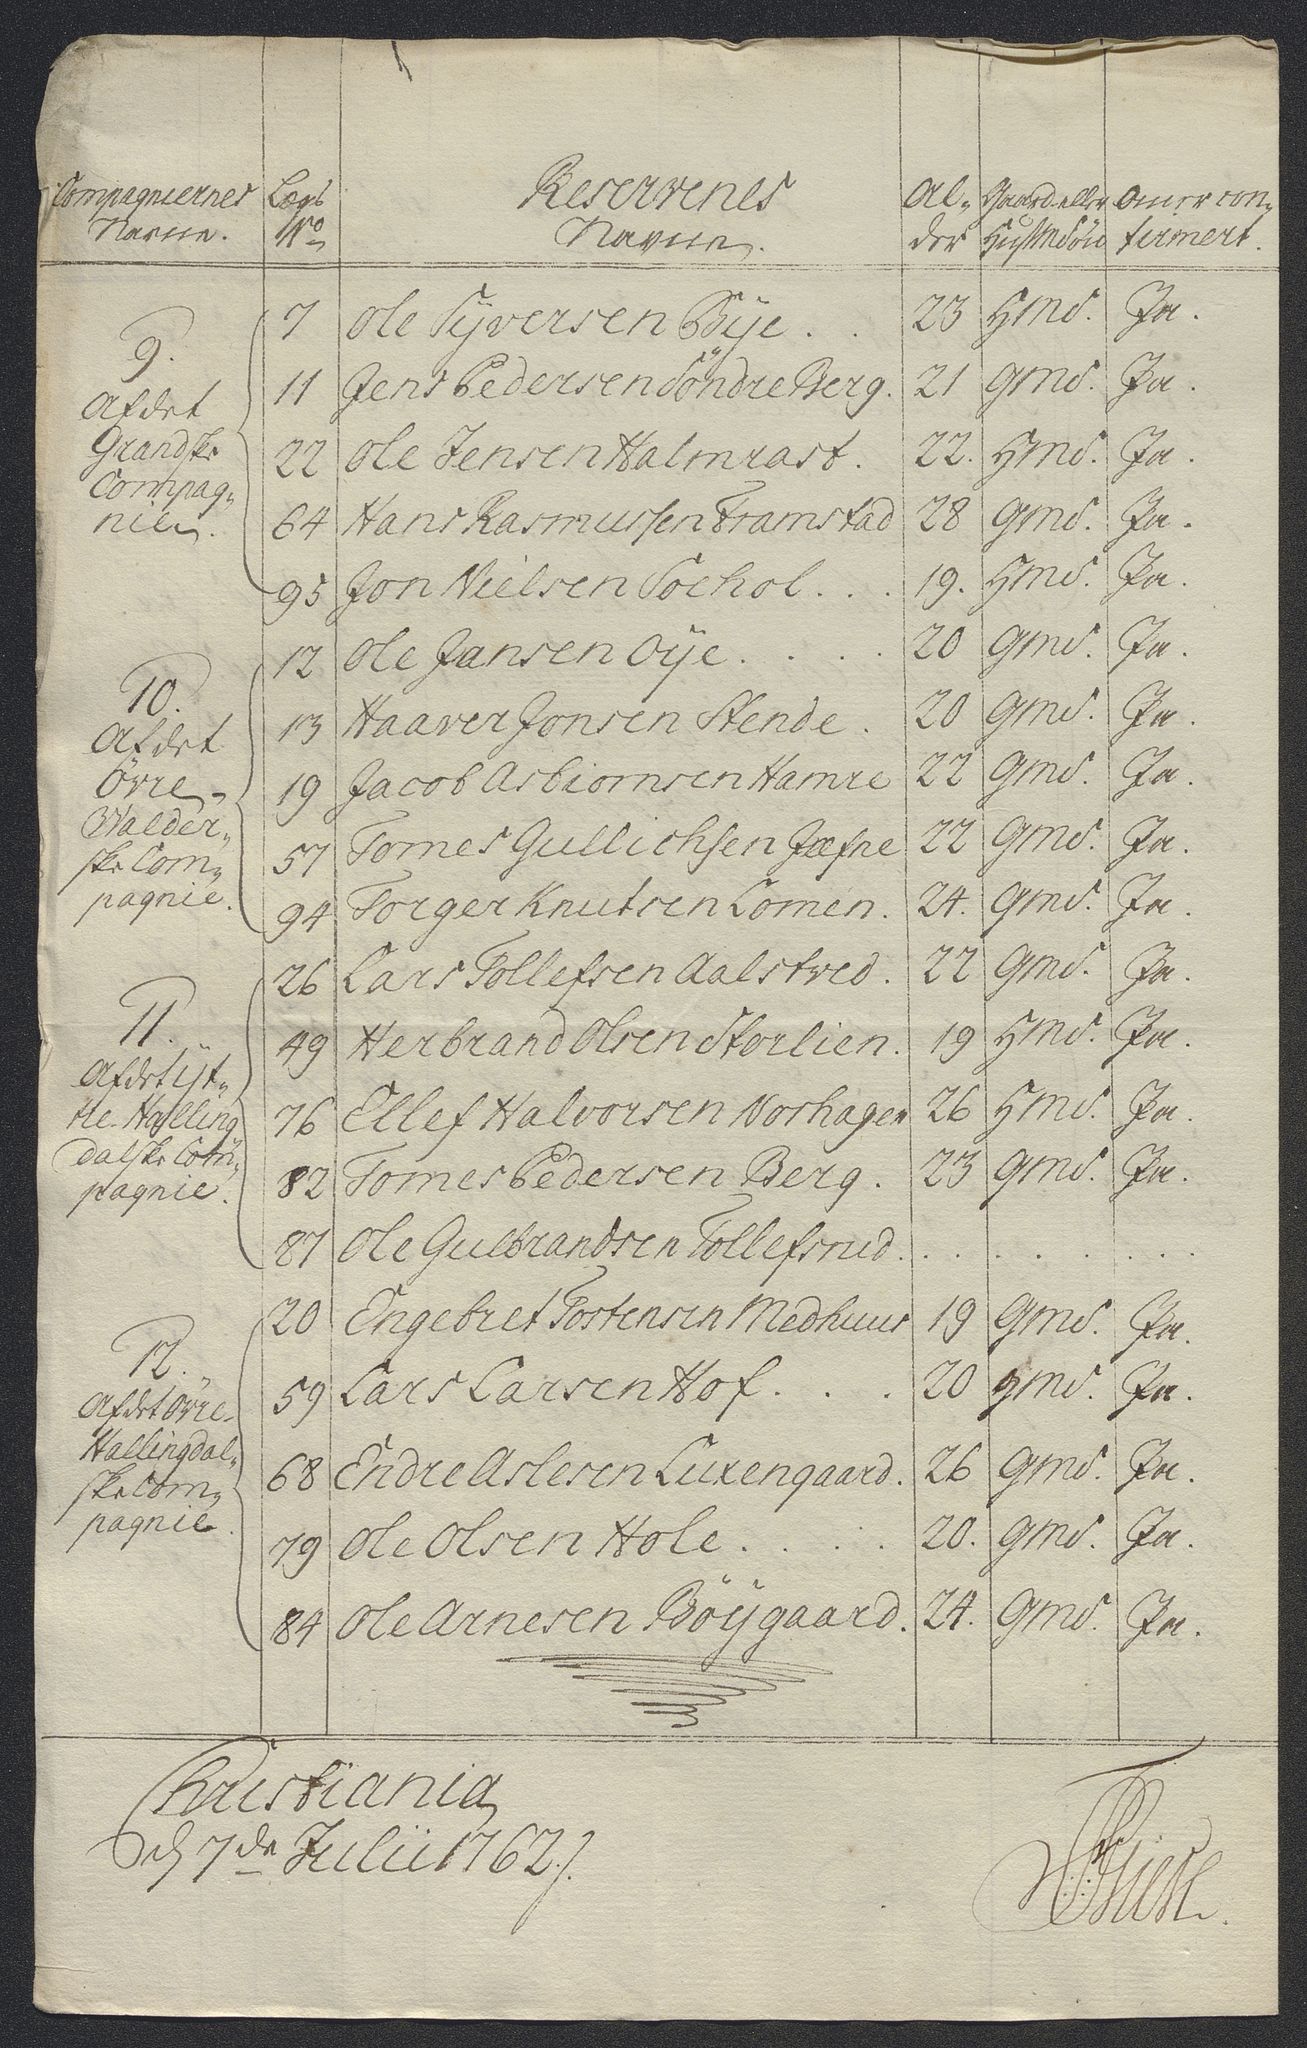 Compagniernes Navne. | Legs No | Reservenes Navne. | Alder | Gaard eller Husmdsön | Om er confirmert.
9. Af det Grandske Compagnie.
7 | Ole Syversen Bye . . | 23 | Hmd. | Ja.
11 | Jens Pedersen Söndre Berg. | 21 | Gmd. | Ja.
22 | Ole Jensen Halmrast. | 22. | Hmd. | Ja.
64 | Hans Rasmussen Framstad | 28 | Gmd. | Ja.
95 | Jon Nielsen Sochol . . . | 19. | Hmd. | Ja.
10. Af det Övre Walderske Compagnie.
12 | Ole Jansen Oye . . . . | 20 | Gmd. | Ja.
13 | Haaver Jonsen Stende. | 20 | Gmd. | Ja.
19 | Jacob Asbiornsen Hamre | 22 | Gmd. | Ja.
57 | Tomes Gullichsen Jæfne | 22 | Gmd. | Ja.
94 | Torger Knutsen Lomen. | 24. | Gmd. | Ja.
11. Af det Ytre Hallingdalske Compagnie.
26 | Lars Tollefsen Aalstved. | 22 | Gmd. | Ja.
49 | Herbrand Olsen Storlien. | 19 | Hmd. | Ja.
76 | Ellef Halvorsen Norhagen | 26 | Hmd. | Ja.
82 | Tomes Pedersen Berg. | 23 | Gmd. | Ja.
87 | Ole Gulbrandsen Tollefsrud . . . . . . . .
12. Af det Övre Hallingdalske Compagnie.
20 | Engebret Tostensen Medhuus | 19 | Gmd. | Ja.
59 | Lars Larsen Hof . . . | 20 | Hmd. | Ja.
68 | Endre Aslesen Luxengaard. | 26 | Gmd. | Ja.
79 | Ole Olsen Hole . . . . | 20. | Gmd. | Ja.
84 | Ole Arnesen Böygaard. | 24. | Gmd. | Ja.
Christiania
d 7de Julii 1762.